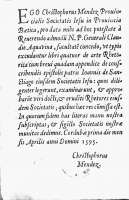 EGO Christophorus Mendez Prouin-
cialis Societatis Iesu in Prouincia
Bætica, pro data mihi ad hoc potestate à
Reuerendo admodũ N.P. Generali Claudio
Aquauiua, facultatẽ concedo, vt typis
excudantur libri quatuor de arte Rhetorica
cum breui quadam appendice de
conscribendis epistolis patris Ioannis de Santiago
eiusdem Societatis Iesu: quos diligenter
legerunt, examinarunt, & approbarunt
viri docti, & eruditi Rhetores eiusdem
Societatis; quibus ea res commissa est.
In quorum fidem has literas manu nostra
subscriptas, & sigillo Societatis nostræ
munitas dedimus. Cordubæ prima die mensis
Aprilis anno Domini 1595.
Christophorus
Mendez.